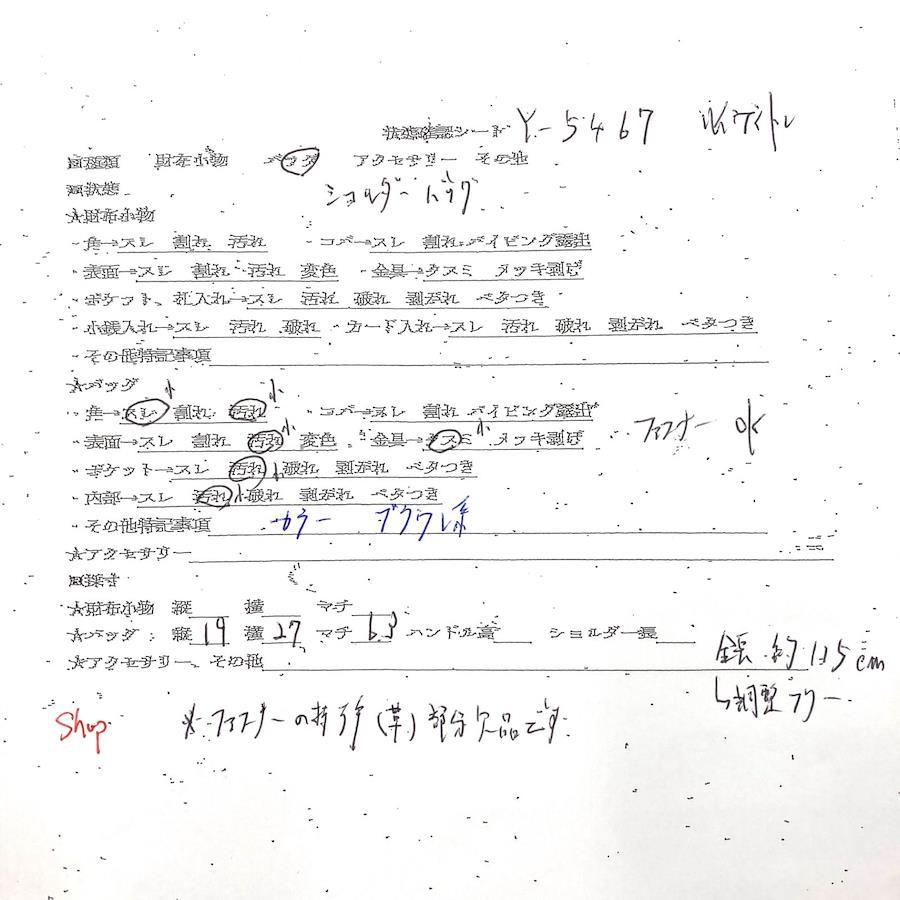 状態確認シート Y-5467 ルイヴィトン
□種類 財布小物 バッグ アクセサリー その他
□状態 ショルダーバッグ
★財布小物
・角→スレ 割れ 汚れ ・コバ→スレ 割れ パイピング露出
・表面→スレ 割れ 汚れ 変色 ・金具→クスミ メッキ剥げ
・ポケット、札入れ→スレ 汚れ 破れ 剥がれ ベタつき
・小銭入れ→スレ 汚れ 破れ ・カード入れ→スレ 汚れ 破れ 剥がれ ベタつき
・その他特記事項
★バッグ 小 小
・角→スレ 割れ 汚れ ・コバ→スレ 割れ パイピング露出
・表面→スレ 割れ 汚れ 小 変色 ・金具→クスミ 小 メッキ剥げ ファスナー OK
・ポケット→スレ 汚れ 小 破れ 剥がれ ベタつき
・内部→スレ 汚れ 小 破れ 剥がれ ベタつき
・その他特記事項 カラー ブラウン系
★アクセサリー
□採寸
★財布小物 縦 横 マチ
★バッグ 縦 19 横 27 マチ 6.5 ハンドル高 ショルダー長
★アクセサリー、その他
全長 約115cm
↳調整フリー
Shop ※ファスナーの持手(革)部分欠品です。